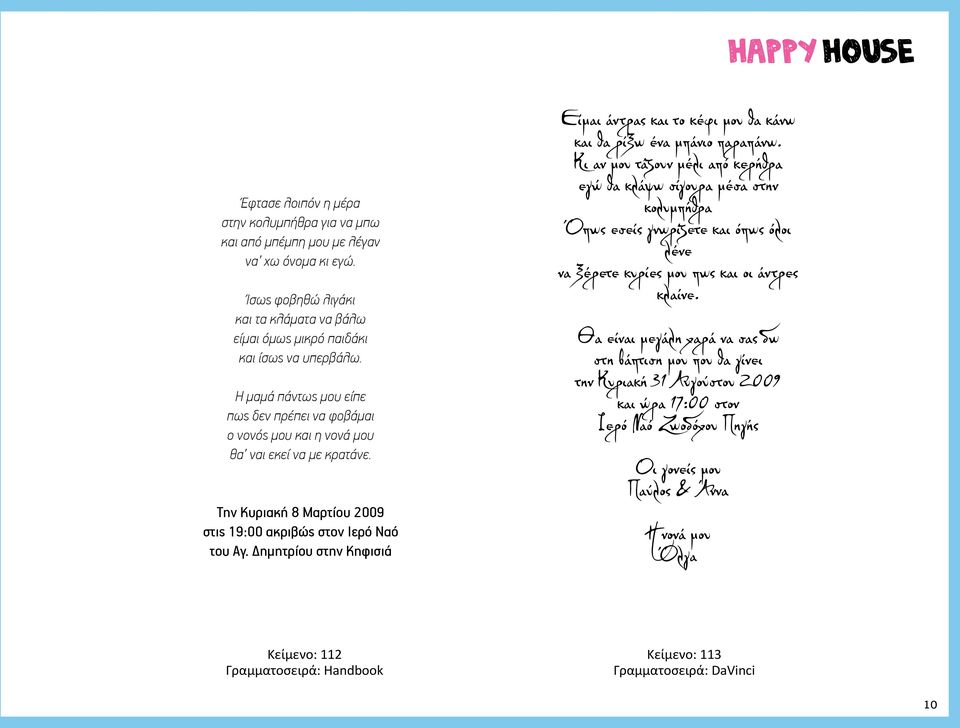 HAPPY HOUSE
Έφτασε λοιπόν η μέρα
στην κολυμπήθρα για να μπω
και από μπέμπη μου με λέγαν
να' χω όνομα κι εγώ.
Ίσως φοβηθώ λιγάκι
και τα κλάματα να βάλω
είμαι όμως μικρό παιδάκι
και ίσως να υπερβάλω.
Η μαμά πάντως μου είπε
πως δεν πρέπει να φοβάμαι
ο νονός μου και η νονά μου
θα' ναι εκεί να με κρατάνε.
Την Κυριακή 8 Μαρτίου 2009
στις 19:00 ακριβώς στον Ιερό Ναό
του Αγ. Δημητρίου στην Κηφισιά
Κείμενο: 112
Γραμματοσειρά: Handbook
Είμαι άντρας και το κέφι μου θα κάνω
και θα ρίξω ένα μπάνιο παραπάνω.
Κι αν μου τάζουν μέλι από κερήθρα
εγώ θα κλάψω σίγουρα μέσα στην
κολυμπήθρα
Όπως εσείς γνωρίζετε και όπως όλοι
λένε
να ξέρετε κυρίες μου πως και οι άντρες
κλαίνε.
Θα είναι μεγάλη χαρά να σας δω
στη βάπτιση μου που θα γίνει
την Κυριακή 31 Αυγούστου 2009
και ώρα 17:00 στον
Ιερό Ναό Ζωοδόχου Πηγής
Οι γονείς μου
Παύλος & Άννα
Η νονά μου
Όλγα
Κείμενο: 113
Γραμματοσειρά: DaVinci
10